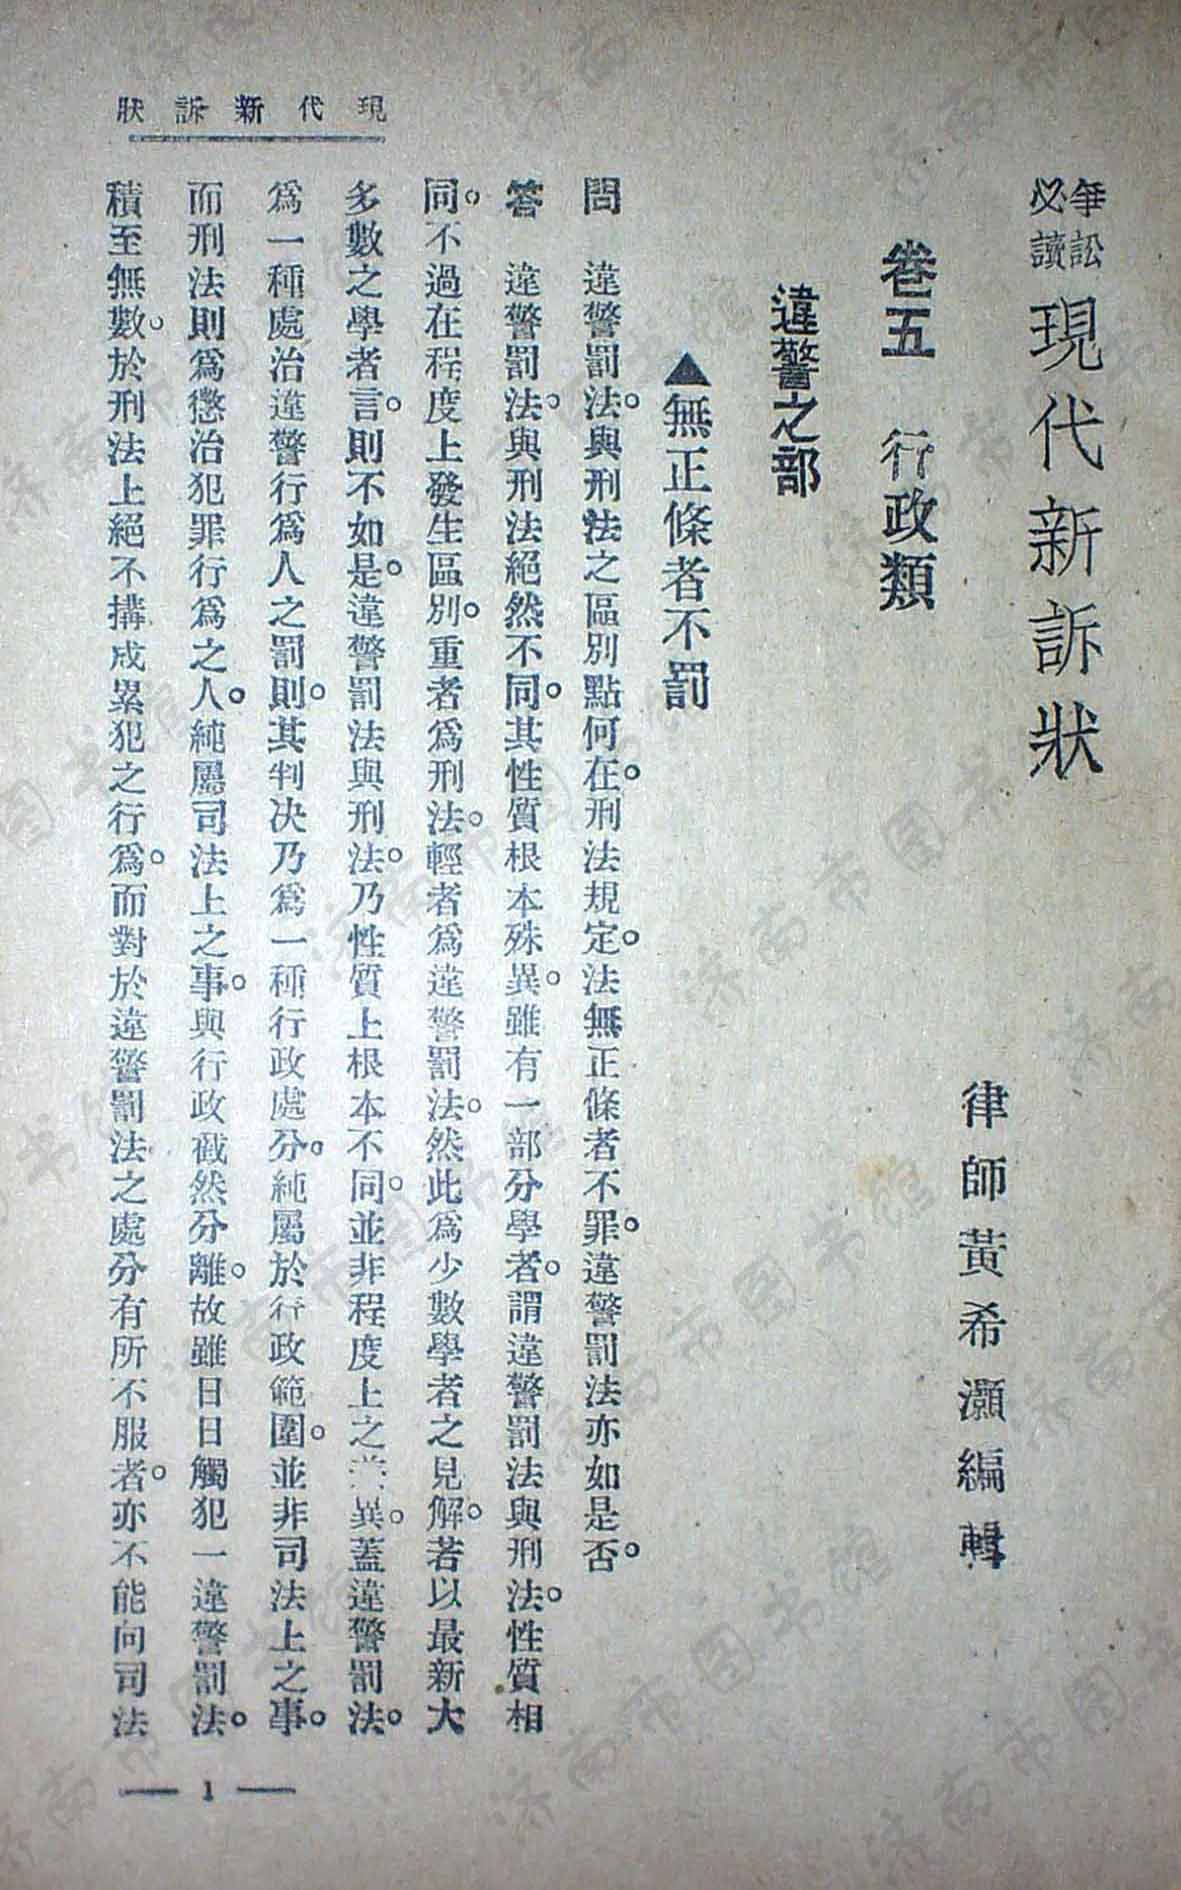 現代新訴狀
爭訟必讀 現代新訴狀
律師黃希灝編輯
卷五 行政類
違警之部
▲無正條者不罰
問 違警罰法。與刑法之區別點何在。刑法規定。法無正條者不罪。違警罰法亦如是否。
答 違警罰法。與刑法絕然不同。其性質根本殊異。雖有一部分學者。謂違警罰法與刑法。性質相
同。不過在程度上發生區別。重者爲刑法。輕者爲違警罰法。然此爲少數學者之見解。若以最新大
多數之學者言。則不如是。違警罰法與刑法。乃性質上根本不同。並非程度上之差異。蓋違警罰法。
爲一種處治違警行爲人之罰則。其判决乃爲一種行政處分。純屬於行政範圍。並非司法上之事。
而刑法則爲懲治犯罪行爲之人。純屬司法上之事。與行政截然分離。故雖日日觸犯一違警罰法。
積至無數。於刑法上絕不搆成累犯之行爲。而對於違警罰法之處分有所不服者。亦不能向司法
— 1 —
济南市图书馆